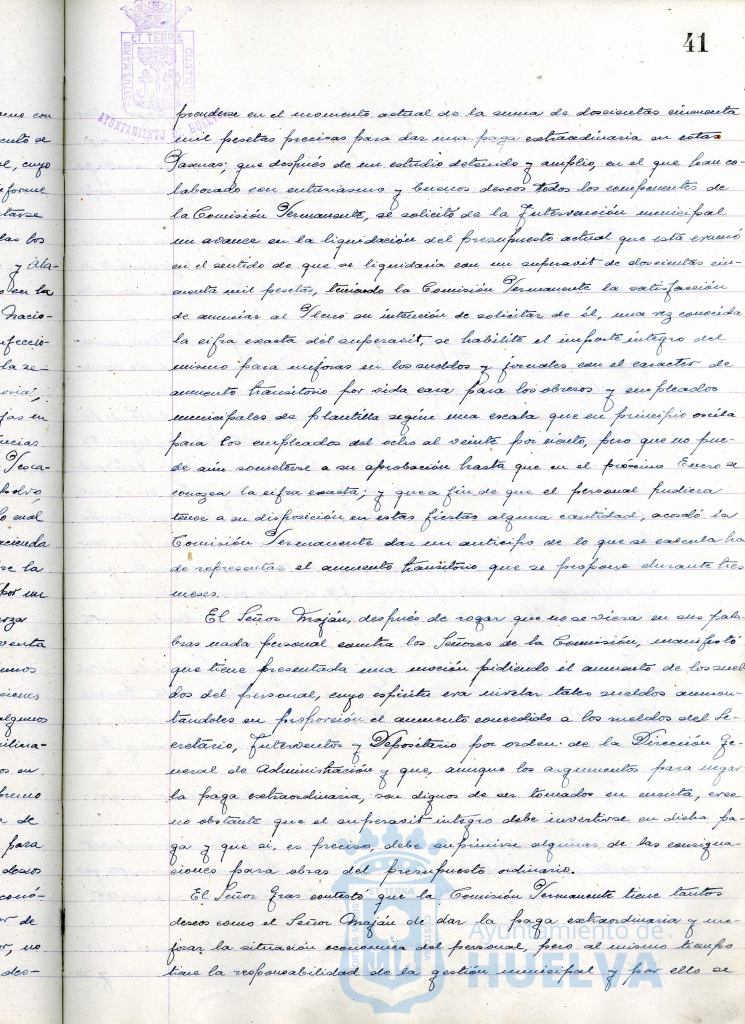 41
PORTUS MARIS ET TERRÆ CUSTODIA
AYUNTAMIENTO DE HUELVA
prenderse en el momento actual de la suma de doscientas cincuenta
mil pesetas precisas para dar una paga extraordinaria en estas
Pascuas; que después de un estudio detenido y amplio, en el que han co-
laborado con entusiasmo y buenos deseos todos los componentes de
la Comisión Permanente, se solicitó de la Intervención municipal
un avance en la liquidación del presupuesto actual que esta evacuó
en el sentido de que se liquidaría con un superavit de doscientas cin-
cuenta mil pesetas, teniendo la Comisión Permanente la satisfacción
de anunciar al Pleno su intención de solicitar de él, una vez conocida
la cifra exacta del superavit, se habilite el importe íntegro del
mismo para mejoras en los sueldos y jornales con el caracter de
aumento transitorio por vida cara para los obreros y empleados
municipales de plantilla según una escala que en principio oscila
para los empleados del ocho al veinte por ciento, pero que no pue-
de aún someterse a su aprobación hasta que en el próximo Enero se
conozca la cifra exacta; y que a fin de que el personal pudiera
tener a su disposición en estas fiestas alguna cantidad, acordó la
Comisión Permanente dar un anticipo de lo que se calcula ha
de representar el aumento transitorio que se propone durante tres
meses.
El Señor Maján, después de rogar que no se viera en sus pala-
bras nada personal contra los Señores de la Comisión, manifestó
que tiene presentada una moción pidiendo el aumento de los suel-
dos del personal, cuyo espíritu era nivelar tales sueldos aumen-
tandoles en proporción el aumento concedido a los sueldos del Se-
cretario, Interventor y Depositario por orden de la Dirección Ge-
neral de Administración y que, aunque los argumentos para negar
la paga extraordinaria, son dignos de ser tomados en cuenta, cree
no obstante que el superavit íntegro debe invertirse en dicha pa-
ga y que si, es preciso, debe suprimirse algunas de las consigna-
ciones para obras del presupuesto ordinario.
El Señor Gras contestó que la Comisión Permanente tiene tantos
deseos como el Señor Maján de dar la paga extraordinaria y me-
jorar la situación económica del personal, pero al mismo tiempo
tiene la responsabilidad de la gestión municipal y por ello se
Ayuntamiento de
HUELVA